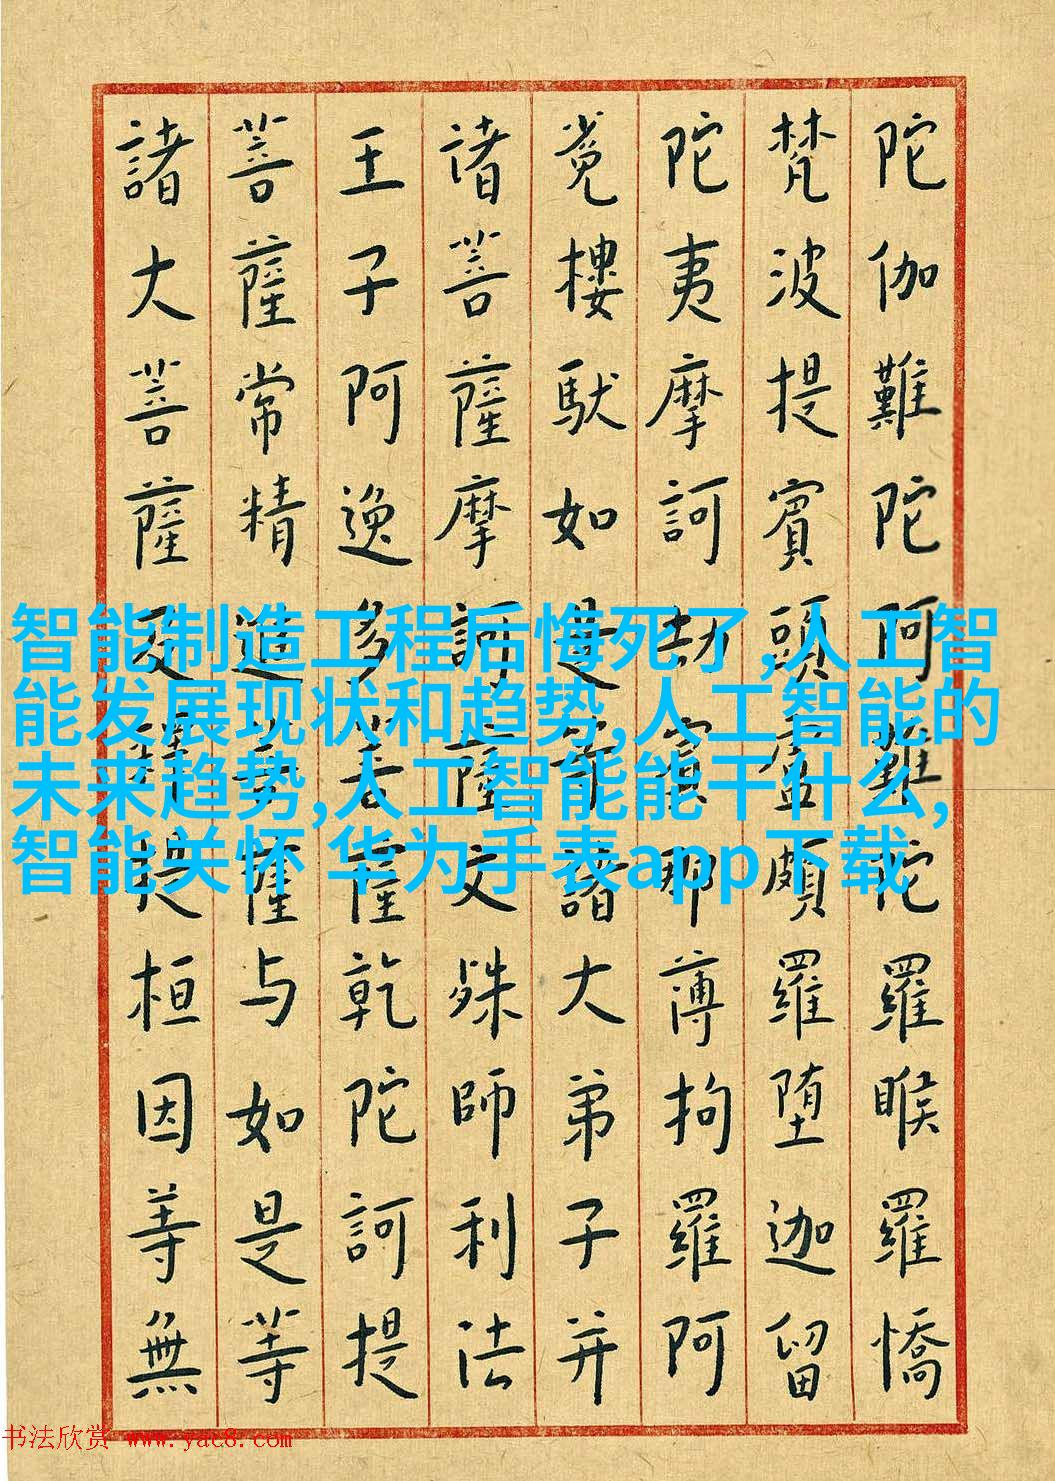 陀伽難陀阿難陀羅睺羅憍
梵波提賓頭盧頗羅堕迦留
陀夷摩訶劫賓那薄拘羅阿
樓馱如是等諸大弟子并
诸菩薩摩訶薩文殊師利法
王子阿逸多菩薩乾陀訶提
菩薩常精進菩薩与如是等
諸大菩薩及釋提桓因等無
智能制造工程后悔死了,人工智
能发展现状和趋势,人工智能的
未来趋势,人工智能能干什么,
智能关怀 华为手表app下载
书法欣赏 www.yac8.com